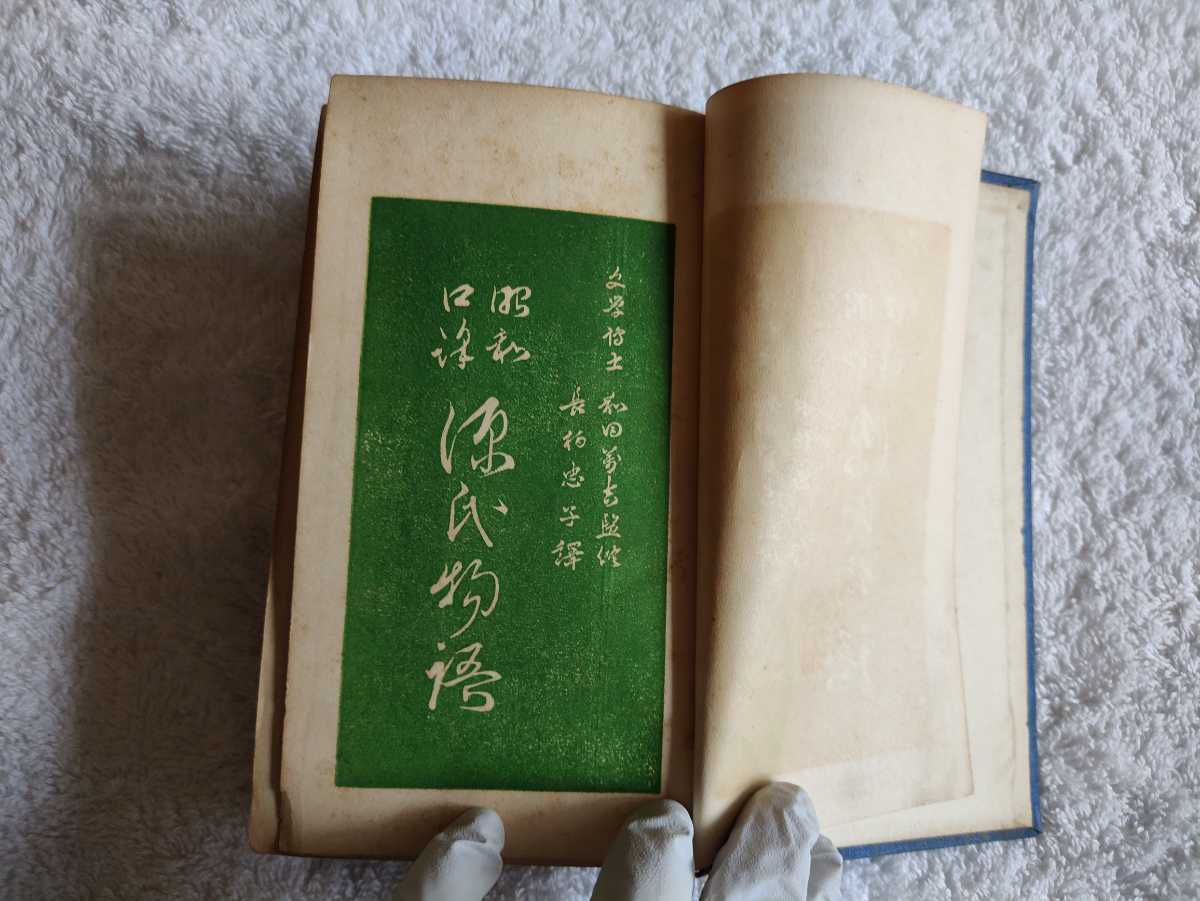 文学博士 和田萬吉監修
長柄忠子譯
昭和
口譯
源氏物語